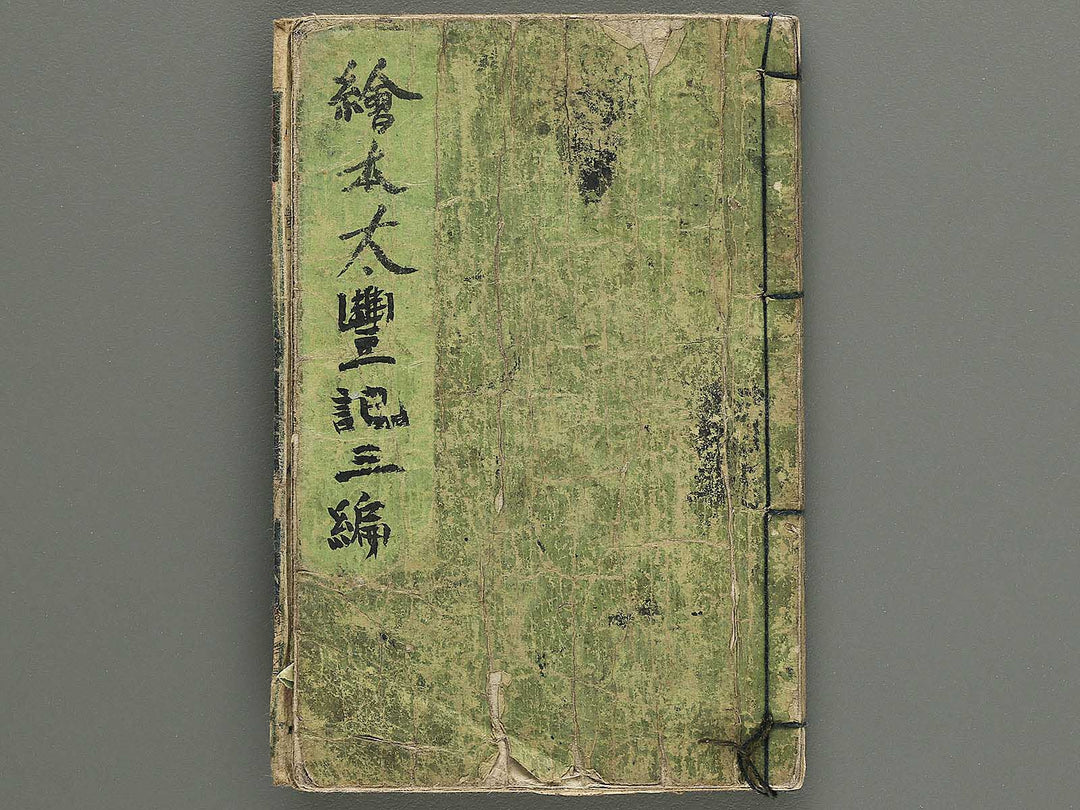 繪本太豐記三編